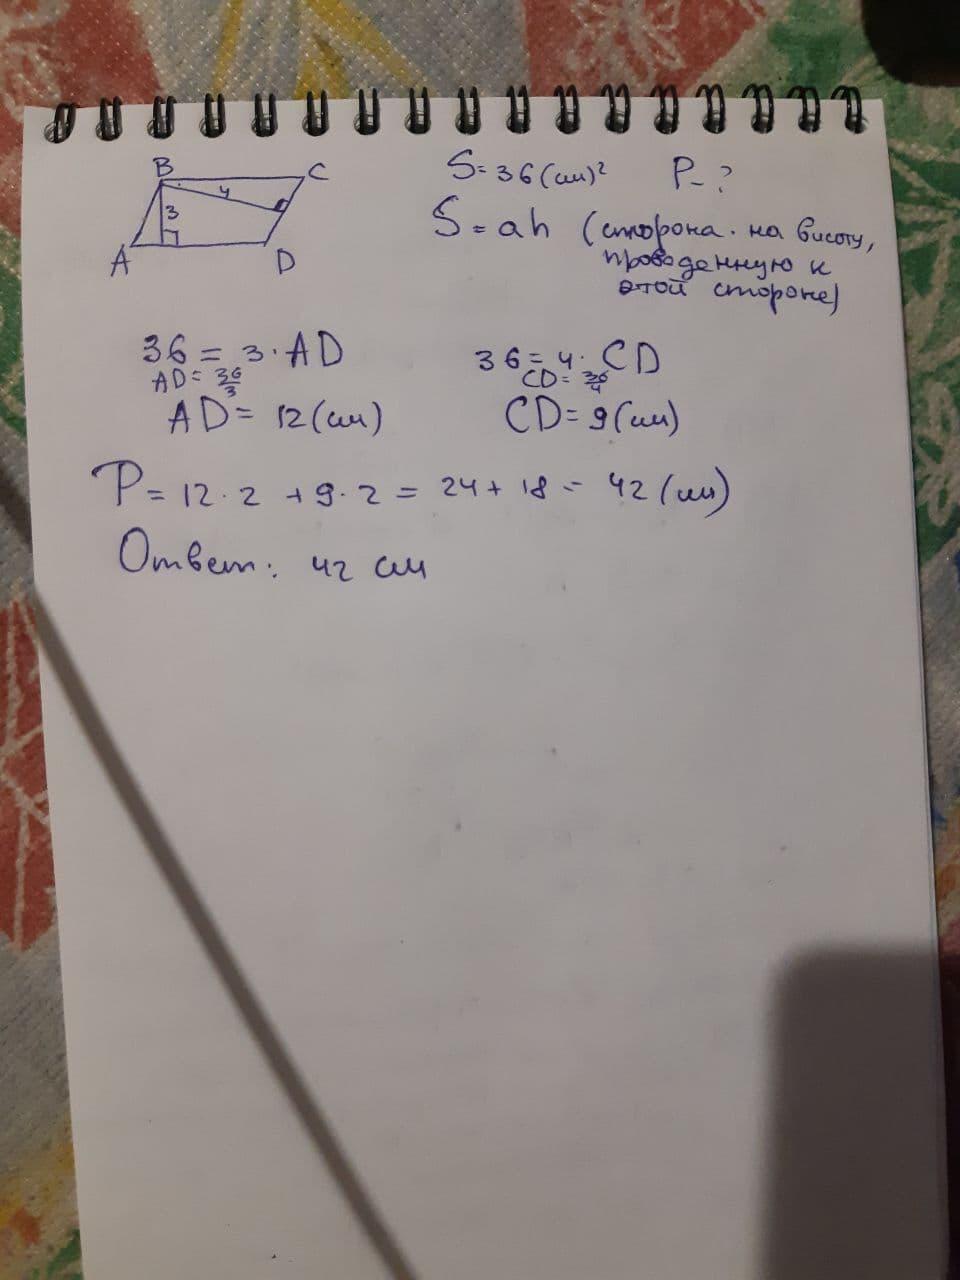 B
C
4
3
A
D
S=36(см)² P-?
S=ah (сторона· на висоту,
проведенную к
этой стороне)
36 = 3·AD
AD= 36/3
AD= 12(см)
36=4·CD
CD= 36/4
CD= 9(см)
P= 12·2 +9·2 = 24+ 18 = 42(см)
Ответ: 42 см